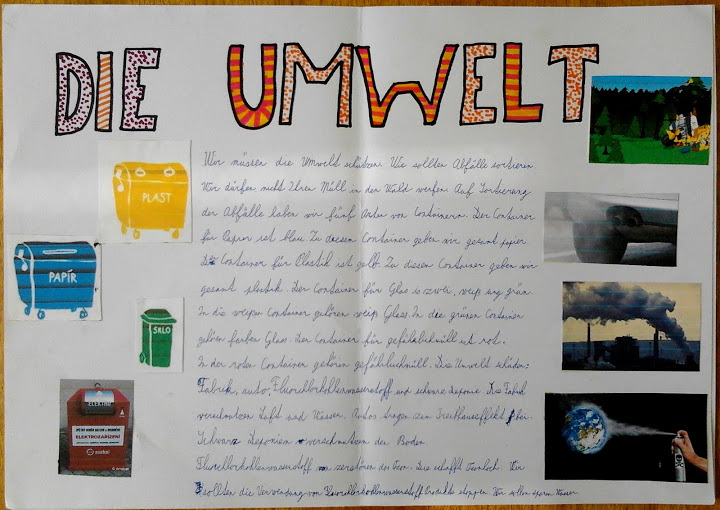 DIE UMWELT
Wir müssen die Umwelt schützen. Wir sollten Abfälle sortieren
Wir dürfen nicht Ihren Müll in den Wald werfen. Auf Sortierung
der Abfälle haben wir fünf Arten von Containern. Der Container
für Papier ist blau. Zu diesem Container geben wir gesamt papier
Der Container für Plastik ist gelb. Zu diesen Container geben wir
gesamt plastik. Der Container für Glas is zwei, weiß ang grün
In die weißen Container gehören weiß Glass. In die grünen Container
gehören farben Glass. Der Container für gefährlichmüll ist rot.
In der roten Container gehören gefährlichmüll. Die Umwelt schäden:
Fabrik, auto, Fluorchlorkohlenwasserstoff und schwarze deponie. Die Fabrik
verschmutzen Luft und Wasser. Autos tragen zum Treibhauseffekt bei.
Schwarz Deponien verschmutzen der Boden
Fluorchlorkohlenwasserstoff zerstören der Ozon. Die schafft Ozonloch. Wir
sollten die Verwendung von Fluorchlorkohlenwasserstoff Produkte stoppen. Wir sollen sparen Wasser
PLAST
PAPÍR
SKLO
ELEKTRO
ELEKTROZAŘÍZENÍ
asekol